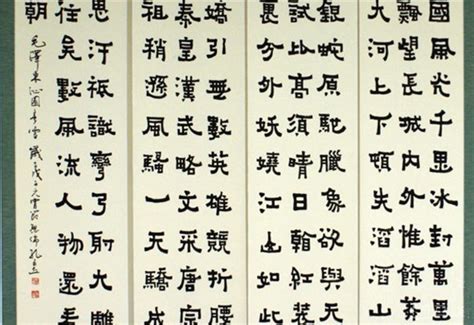 國風光千里冰封萬里
飄望長城內外惟餘
大河上下頓失滔滔山
銀蛇原馳蠟象欲與天
試比高須晴日看紅裝
裹分外妖嬈江山如此
嬌引無數英雄競折腰
秦皇漢武略文采唐宗
祖稍遜風騷一天驕成
思汗祇識彎弓射大雕
往矣數風流人物還看
朝
毛澤東沁園春雪